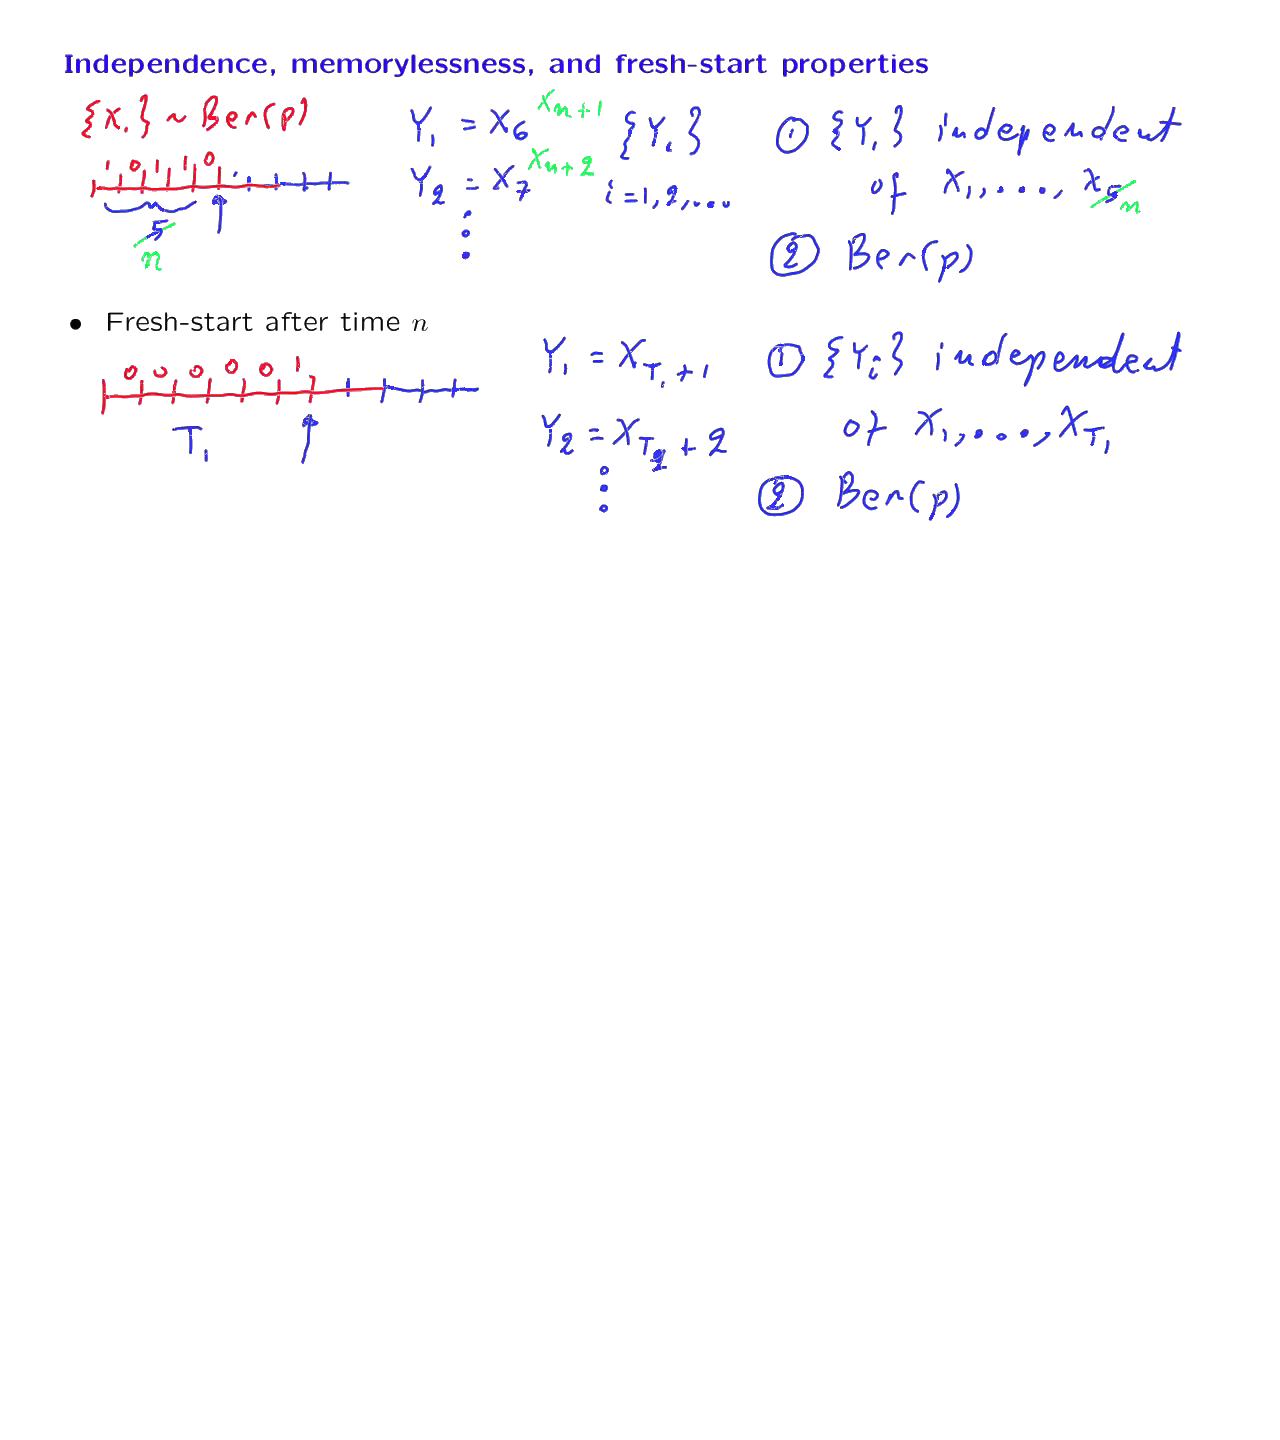 Independence, memorylessness, and fresh-start properties
{Xᵢ} ~ Ber(p)
1 0 1 1 0
5
n
Y₁ = X₆ Xₙ₊₁
Y₂ = X₇ Xₙ₊₂
{Yᵢ}
i = 1, 2, ...
① {Yᵢ} independent
of X₁, ..., X₅ ₙ
② Ber(p)
• Fresh-start after time n
0 0 0 0 0 1
T₁
Y₁ = X_{T₁ + 1}
Y₂ = X_{T₁ + 2}
① {Yᵢ} independent
of X₁, ..., X_{T₁}
② Ber(p)